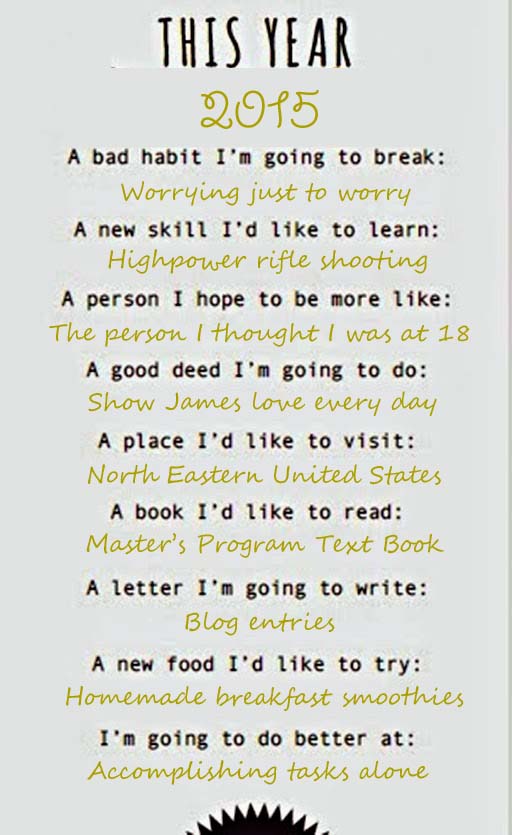 THIS YEAR
2015
A bad habit I'm going to break:
Worrying just to worry
A new skill I'd like to learn:
Highpower rifle shooting
A person I hope to be more like:
The person I thought I was at 18
A good deed I'm going to do:
Show James love every day
A place I'd like to visit:
North Eastern United States
A book I'd like to read:
Master's Program Text Book
A letter I'm going to write:
Blog entries
A new food I'd like to try:
Homemade breakfast smoothies
I'm going to do better at:
Accomplishing tasks alone